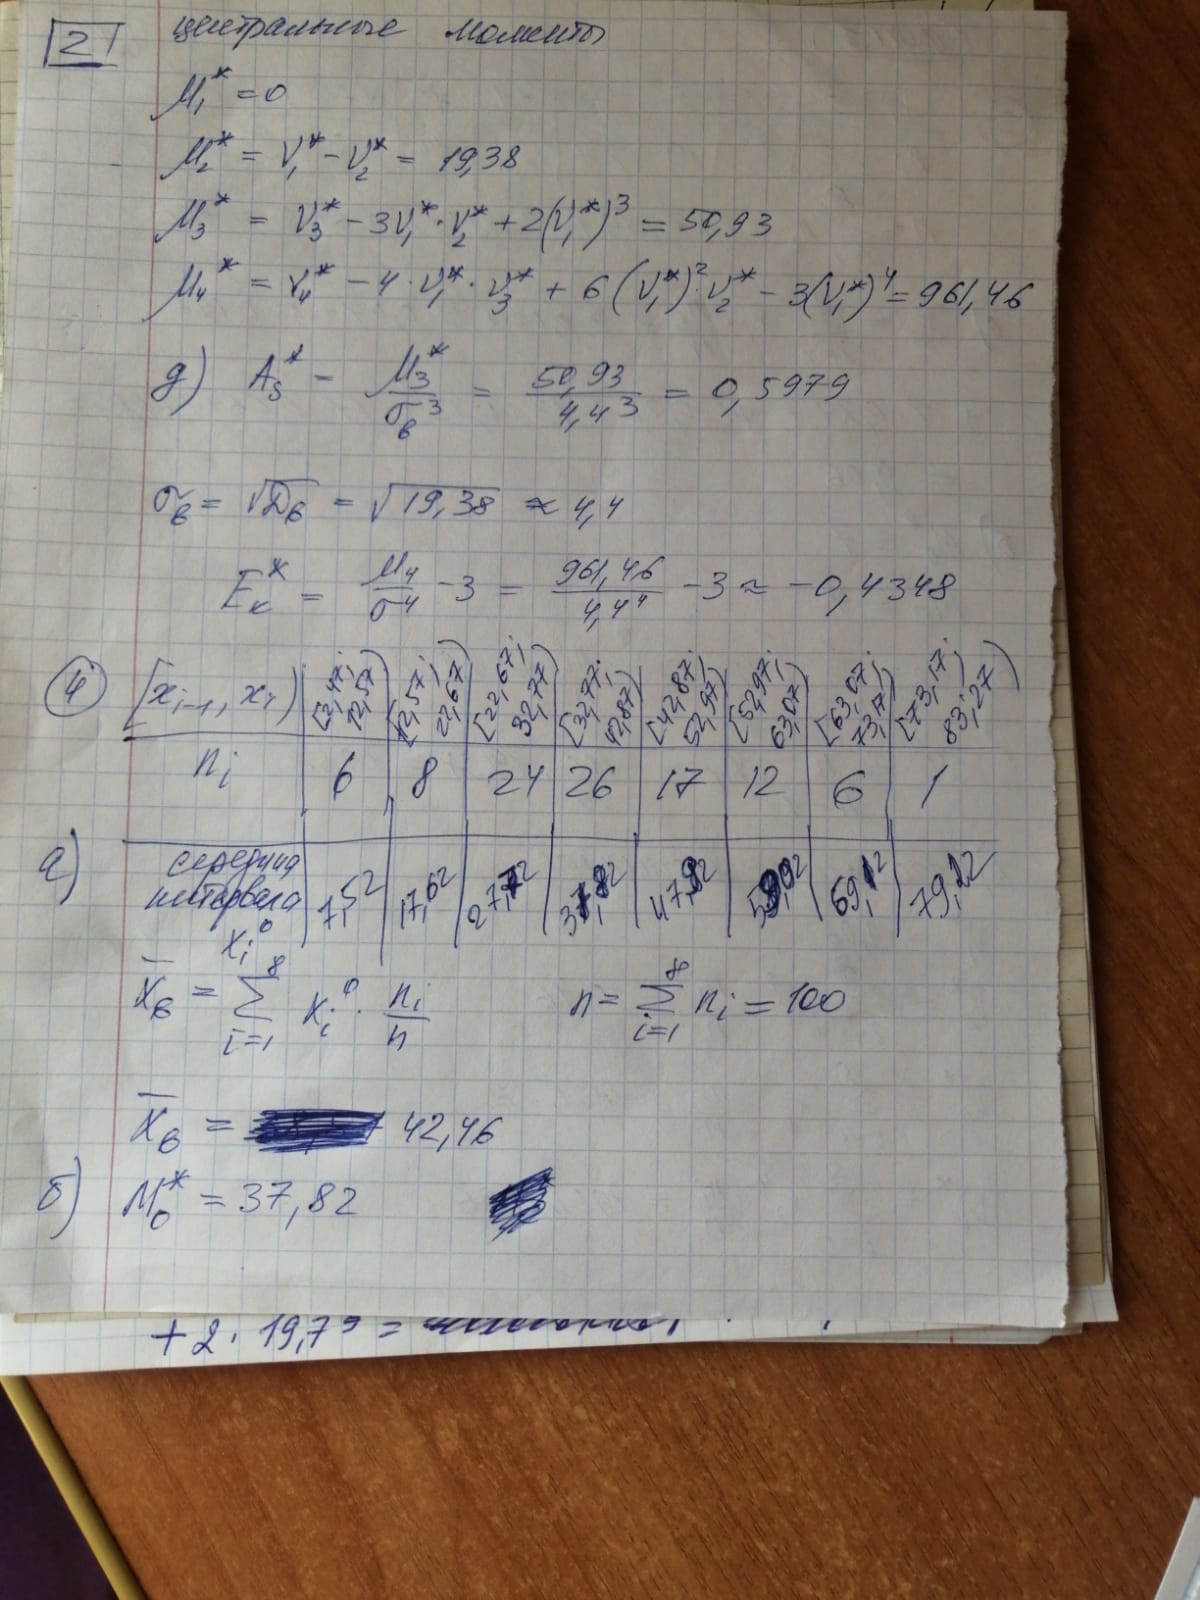 2
центральные моменты
M₁* = 0
M₂* = V₁* − V₂* = 19,38
M₃* = V₃* − 3V₁* · V₂* + 2(V₁*)³ = 50,93
M₄* = V₄* − 4 · V₁* · V₃* + 6 (V₁*)² · V₂* − 3(V₁*)⁴ = 961,46
д) As* − M₃*/σв³ = 50,93/4,4³ = 0,5979
σв = √Dв = √19,38 ≈ 4,4
Eк* = M₄/σ⁴ − 3 = 961,46/4,4⁴ − 3 ≈ −0,4348
4
[xi−1, xi) [2,47; 12,57) [12,57; 22,67) [22,67; 32,77) [32,77; 42,87) [42,87; 52,97) [52,97; 63,07) [63,07; 73,17) [73,17; 83,27)
ni 6 8 24 26 17 12 6 1
а) середина интервала xi⁰ 7,52 17,62 27,72 37,82 47,92 69,12 79,12
x̄в = ∑ i=1 8 xi⁰ · ni/n n = ∑ i=1 8 ni = 100
x̄в = 42,46
б) M₀* = 37,82
+ 2 · 19,79 =